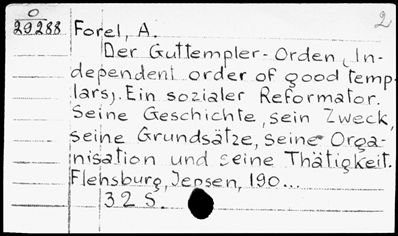 O
29288
2
Forel, A.
Der Guttempler-Orden (In-
dependent order of good temp-
lars). Ein sozialer Reformator.
Seine Geschichte, sein Zweck,
seine Grundsätze, seine Orga-
nisation und seine Thätigkeit.
Flensburg, Jepsen, 190...
32 S.